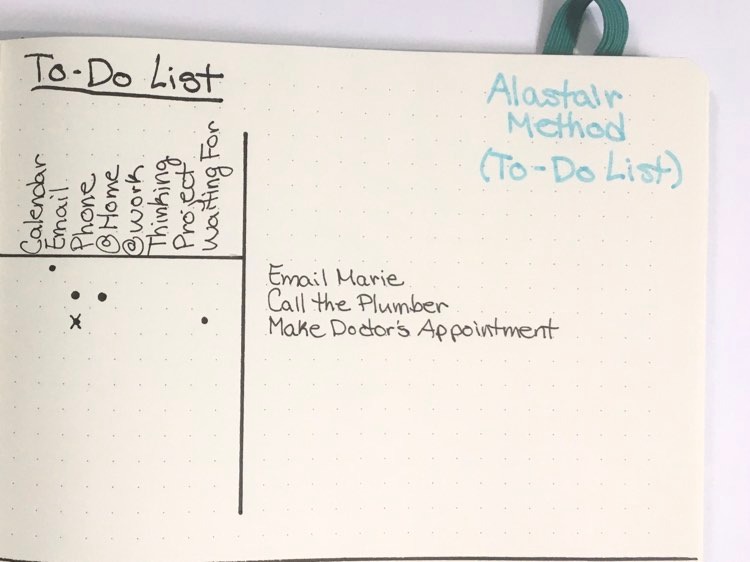 To-Do List
Alastair
Method
(To-Do List)
Calendar
Email
Phone
@Home
@work
Thinking
Project
Waiting For
Email Marie
Call the Plumber
x Make Doctor's Appointment